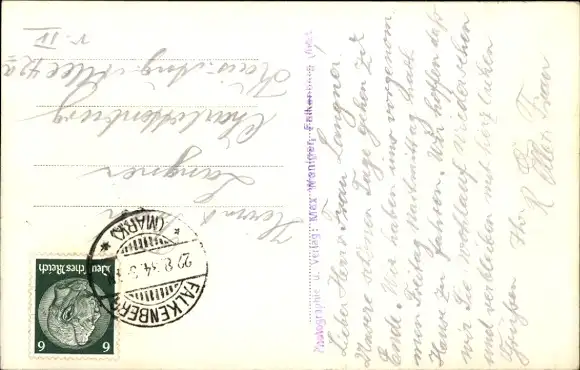 Lieber Herr, Frau Langner.
Unsere schönen Tage gehen zu
Ende. Wir haben uns vorgenom.
men Freitag Nachmittag nach
Hause zu fahren. Wir hoffen daß
wir Sie wohlauf wiedersehen
und verbleiben mit herzlichen
Grüßen Ihr
R. u. Frau
Photographie u. Verlag: Max Weniger, Falkenberg
Herrn u.
Langner
Charlottenburg
Kais. Aug. Allee 42a
v. IV
Deutsches Reich
6 6
FALKENBERG
(MARK)
22.8.34